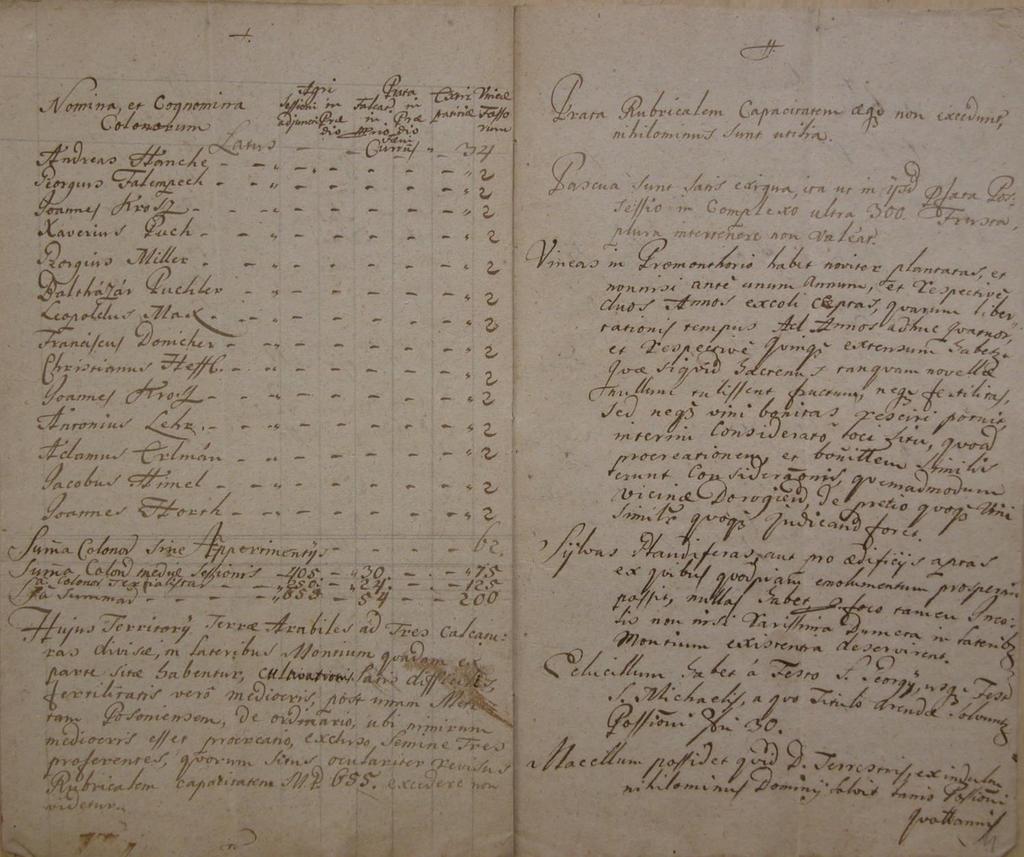 Nomina, et Cognomina
Colonorum
Agri
Sessioni in
adjuncti Præ
dio
Prata
Falcat. in
in Præ
dio
Fæni
Currus
Extir
patitiæ
Vineæ
Fosso
rum
Latus - - - " 34
Andreas Hanche - - " - - - - " 2
Georgius Falempech - - " - - - - " 2
Joannes Krosz - - " - - - - " 2
Xaverius Puch - - " - - - - " 2
Georgius Miller - - " - - - - " 2
Baltházár Puchler - " - - - - " 2
Leopoldus Max - " - - - - " 2
Franciscus Donicher - " - - - - " 2
Christianus Heffl. - " - - - - " 2
Joannes Krosz - - " - - - - " 2
Antonius Lehr. - - " - - - - " 2
Adamus Erlmán - - " - - - - " 2
Jacobus Himel - - " - - - - " 2
Joannes Horth - - " - - - - " 2
Suma Colonor sine Appertinentijs - - - - 62.
Suma Colonor mediæ Sessionis - 405 - " 30 - - " 75
250 24 125
Summar - - - - " 655 - 54 - - 200
Hujus Territorij Terræ Arabiles ad Tres Calcatu:
ras divisæ, in lateribus Montium quadam ex
parte sitæ habentur, culturationis satis difficilis,
fertilitatis verò mediocris, post unam Metre
tam Posoniensem, de ordinario, ubi nimirum
mediocris esset procreatio, excluso, Semine Tres
proferentes, quorum situs, oculariter revisus
Rubricalem capacitatem M.P. 655. excedere non
videtur.
Prata Rubricalem Capacitatem æqè non excedunt,
nihilominus sunt utilia.
Pascua sunt satis exigua, ita ut in ipsis Pos:
sessio in Complexo ultra 300. Frusta,
plura intertenere non valeat.
Vineas in Promonthorio habet noviter plantatas, et
nonnisi antè unum Annum, et respectivè
duos Annos excoli cæptas, quarum liber
tationis tempus Ad Annos adhuc quatuor,
et respectivè quinq extensum habetur
quæ siquid hactenus tanquam novellæ
nullum tulissent fructum, neq fertilitas,
sed neq vini bonitas resciri potuit,
interim considerato, loci situ, quoad
procreationem, et bonitatem similis
erunt Considerationis, quemadmodum
vicinæ Dorogiens, de pretio quoq vini
similr quoq judicand foret.
Sylvas Glandiferas, aut pro ædificijs aptas
ex quibus quodpiam emolumentum prosperari
possit, nullas habet, foco tamen Inco
lis non nisi rarissima Dumeta in lateribus
Montium existentia deservirent.
Educillum habet á Festo S. Georgij, usq Fest
S. Michaelis, a quo Titulo Arendæ solvuntur
Possioni fr 30.
Macellum possidet quid D. Terrestris, ex indultu
nihilominus Dominij solvit Lanio Possioni
quottannis